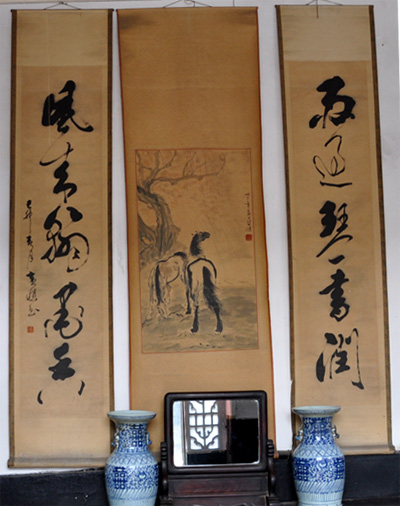 雨過琴書潤
風來翰墨香
己卯